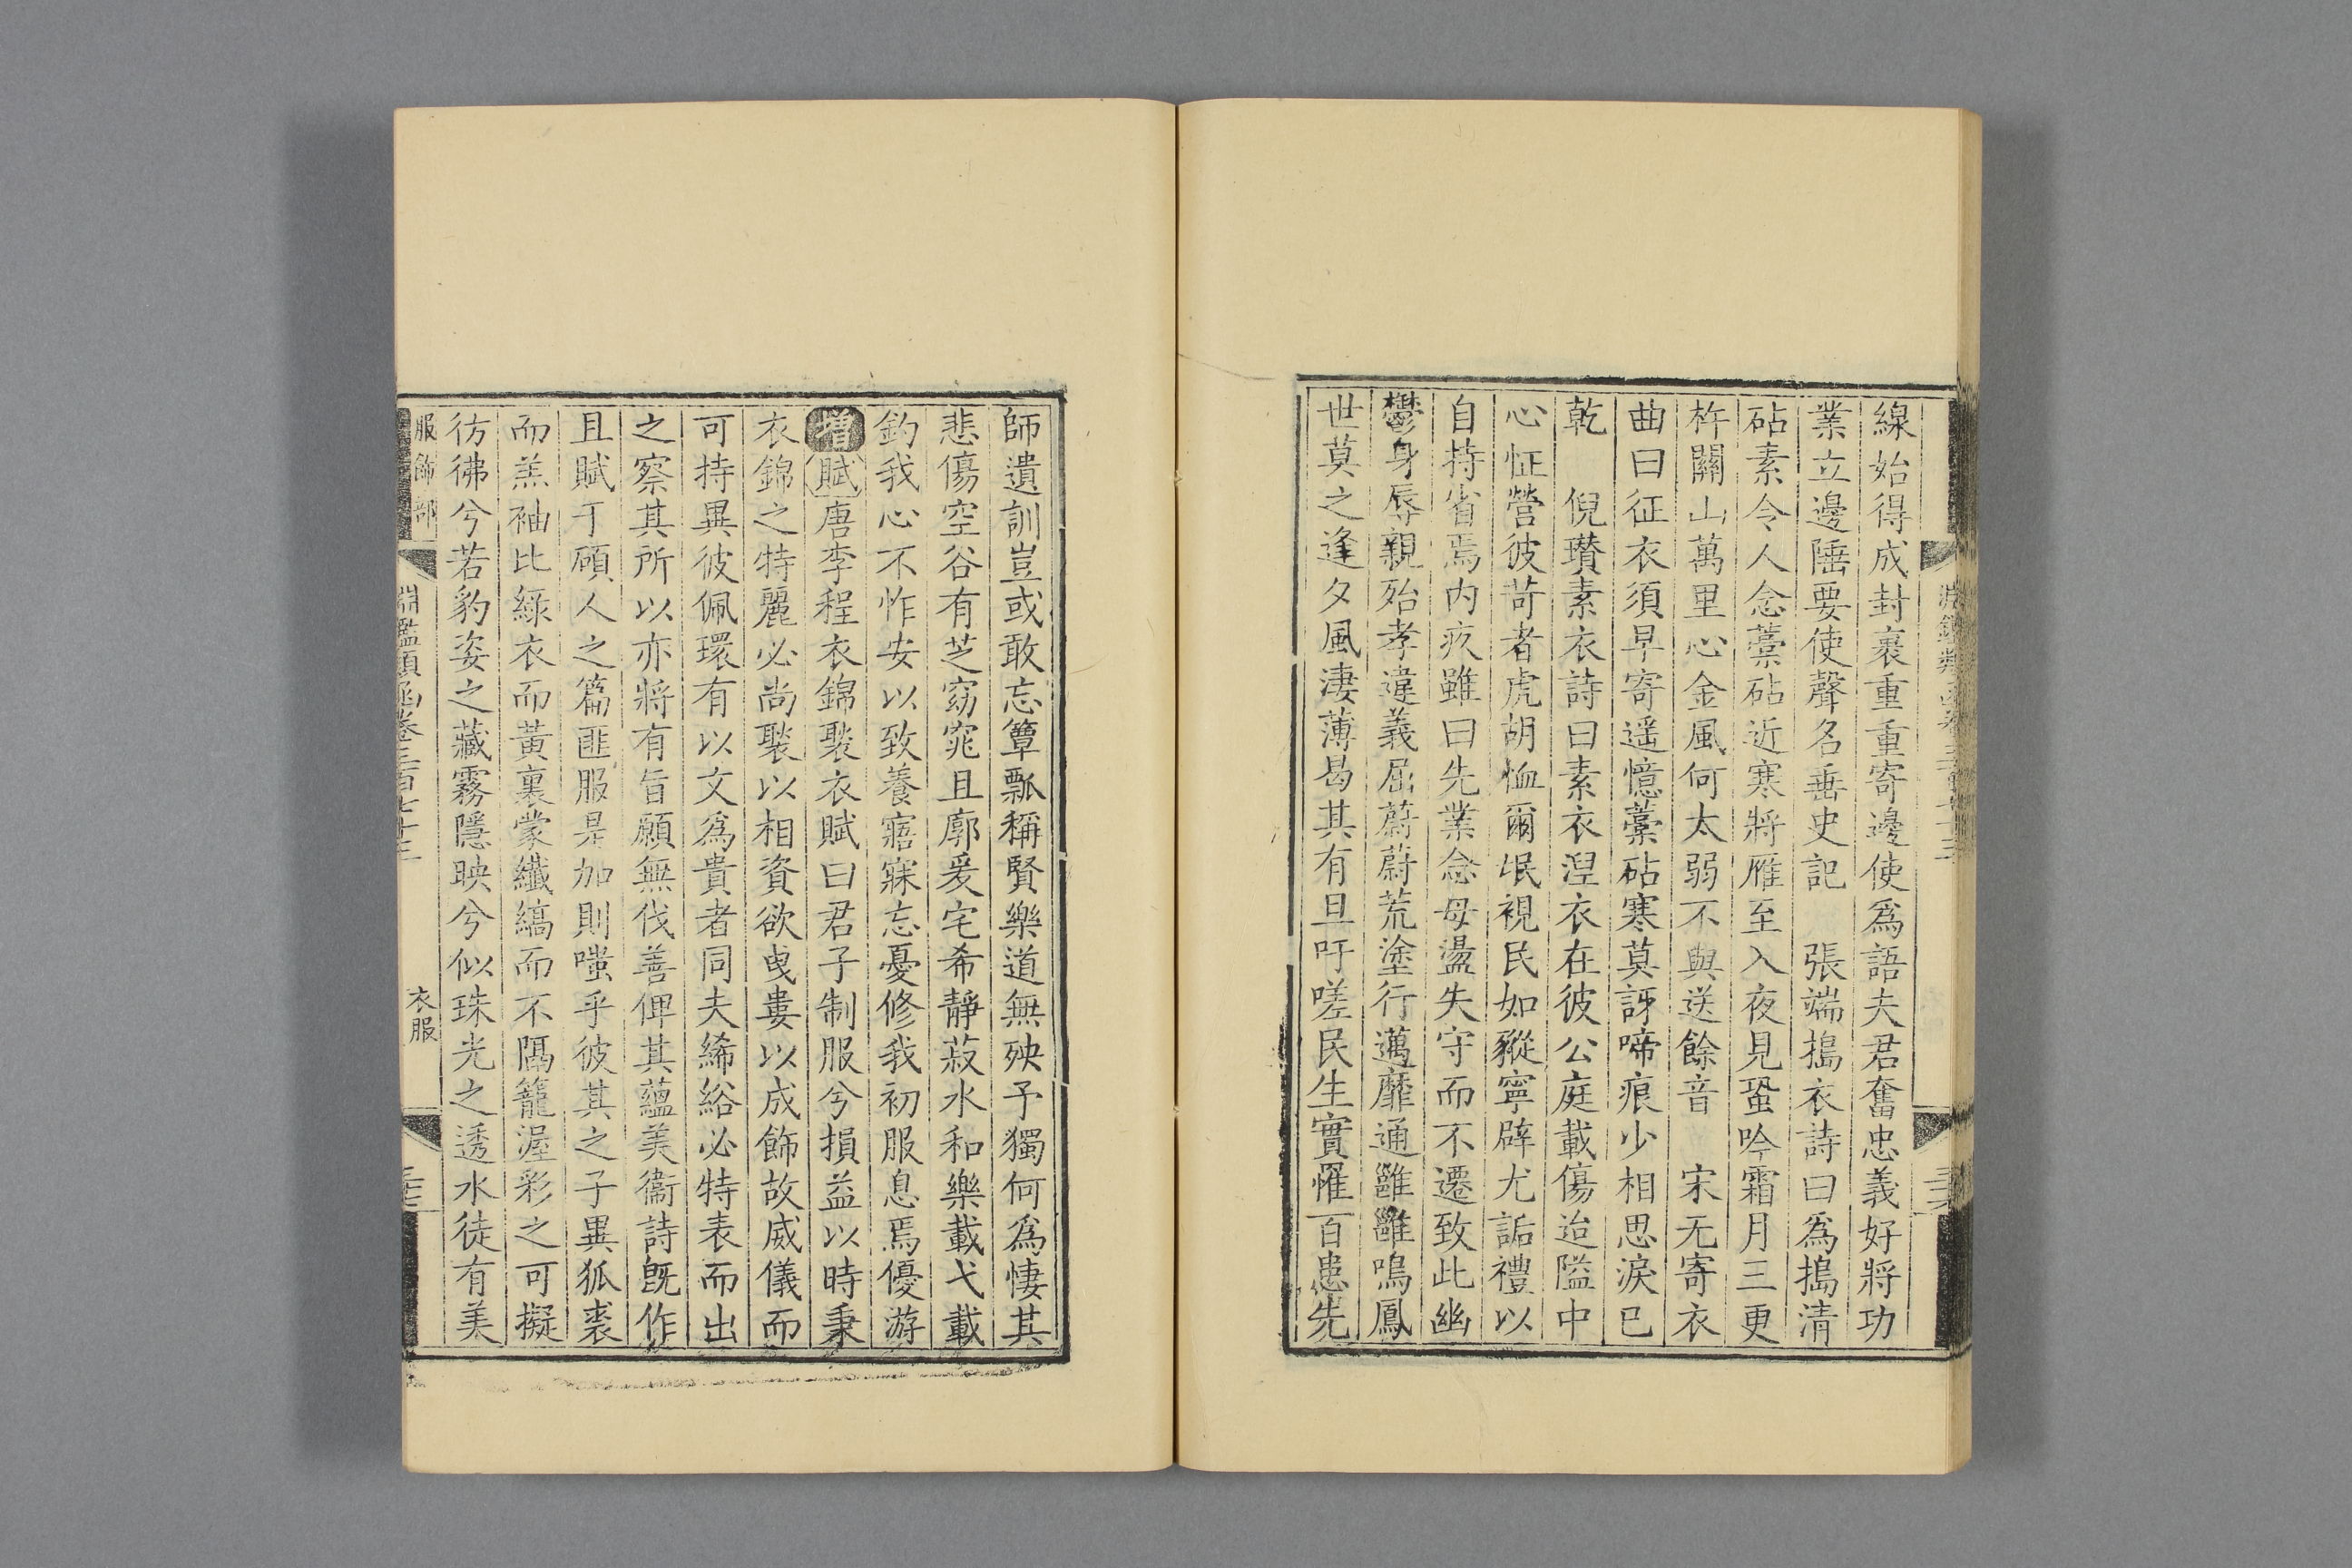 線始得成封裹重重寄邊使爲語夫君奮忠義好將功
業立邊陲要使聲名垂史記　張端搗衣詩曰爲搗清
砧素令人念藁砧近寒將雁至入夜見蛩吟霜月三更
杵關山萬里心金風何太弱不與送餘音　宋无寄衣
曲曰征衣須早寄遥憶藁砧寒莫訝啼痕少相思淚已
乾　倪瓉素衣詩曰素衣湼衣在彼公庭載傷迨隘中
心怔營彼苛者虎胡恤爾氓視民如豵寧辟尤詬禮以
自持省焉内疚雖曰先業念母盪失守而不遷致此幽
鬱身辱親殆孝違義屈蔚蔚荒塗行邁靡通雝雝鳴鳳
世莫之逢夕風淒薄曷其有旦吁嗟民生實罹百患先
師遺訓豈或敢忘簞瓢稱賢樂道無殃予獨何爲悽其
悲傷空谷有芝窈窕且廓爰宅希靜菽水和樂載弋載
釣我心不怍安以致養寤寐忘憂修我初服息焉優游
增賦唐李程衣錦褧衣賦曰君子制服兮損益以時秉
衣錦之特麗必尚褧以相資欲曵婁以成飾故威儀而
可持異彼佩環有以文爲貴者同夫絺綌必特表而出
之察其所以亦將有旨願無伐善俾其蘊美衞詩旣作
且賦于碩人之篇匪服是加則嗤乎彼其之子異狐裘
而羔袖比綠衣而黃裏蒙纎縞而不隔籠渥彩之可擬
彷彿兮若豹姿之藏霧隱映兮似珠光之透水徒有美
服飾部　淵鑑類函卷三百七十三　衣服